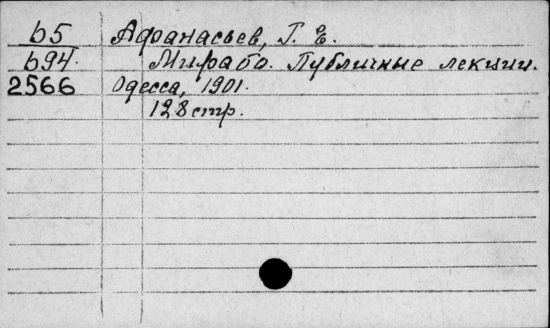 б5 Афанасьев, Г. Е.
б94. Мирабо. Публичные лекции.
2566 Одесса, 1901.
128 стр.